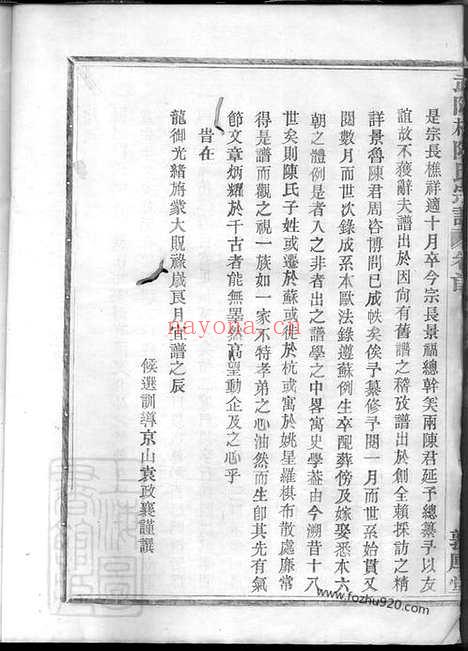 是宗長樵祥適十月卒今宗長景福總幹筊兩陳君延予總纂予以友
誼故不獲辭夫譜出於因向有舊譜之稽攷譜出於創全賴採訪之精
詳景魯陳君周咨博問已成帙矣俟予纂修予閱一月而世系始貫又
閱數月而世次錄成系本歐法錄遵蘇例生卒配葬傍及嫁娶悉本六
朝之體例是者入之非者出之譜學之中畧寓史學葢由今溯昔十八
世矣則陳氏子姓或遷於蘇或徙於杭或寓於姚星羅棋布散處靡常
得是譜而觀之視一族如一家不特孝弟之心油然而生即其先有氣
節文章炳耀於千古者能無睪然高望動企及之心乎
旹在
龍御光緒旃蒙大𣶂獻歲良月宜譜之辰
候選訓導京山袁政襄謹譔
陳氏宗譜 卷首
敦厚堂
nayona.cn
www.fozhu920.com